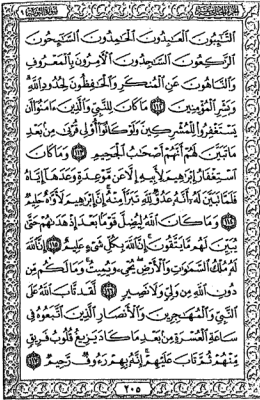 التَّٰٓئِبُونَ ٱلْعَٰبِدُونَ ٱلْحَٰمِدُونَ ٱلسَّٰٓئِحُونَ
ٱلرَّٰكِعُونَ ٱلسَّٰجِدُونَ ٱلْءَامِرُونَ بِٱلْمَعْرُوفِ
وَٱلنَّاهُونَ عَنِ ٱلْمُنكَرِ وَٱلْحَٰفِظُونَ لِحُدُودِ ٱللَّهِ
وَبَشِّرِ ٱلْمُؤْمِنِينَ ١١٢ مَا كَانَ لِلنَّبِىِّ وَٱلَّذِينَ ءَامَنُوٓا۟ أَن
يَسْتَغْفِرُوا۟ لِلْمُشْرِكِينَ وَلَوْ كَانُوٓا۟ أُو۟لِى قُرْبَىٰ مِنۢ بَعْدِ
مَا تَبَيَّنَ لَهُمْ أَنَّهُمْ أَصْحَٰبُ ٱلْجَحِيمِ ١١٣ وَمَا كَانَ
ٱسْتِغْفَارُ إِبْرَٰهِيمَ لِأَبِيهِ إِلَّا عَن مَّوْعِدَةٍ وَعَدَهَآ إِيَّاهُ
فَلَمَّا تَبَيَّنَ لَهُۥٓ أَنَّهُۥ عَدُوٌّ لِّلَّهِ تَبَرَّأَ مِنْهُ إِنَّ إِبْرَٰهِيمَ لَأَوَّٰهٌ حَلِيمٌ
١١٤ وَمَا كَانَ ٱللَّهُ لِيُضِلَّ قَوْمًۢا بَعْدَ إِذْ هَدَىٰهُمْ حَتَّىٰ
يُبَيِّنَ لَهُم مَّا يَتَّقُونَ إِنَّ ٱللَّهَ بِكُلِّ شَىْءٍ عَلِيمٌ ١١٥ إِنَّ ٱللَّهَ
لَهُۥ مُلْكُ ٱلسَّمَٰوَٰتِ وَٱلْأَرْضِ يُحْىِۦ وَيُمِيتُ وَمَا لَكُم مِّن
دُونِ ٱللَّهِ مِن وَلِىٍّ وَلَا نَصِيرٍ ١١٦ لَّقَد تَّابَ ٱللَّهُ عَلَى
ٱلنَّبِىِّ وَٱلْمُهَٰجِرِينَ وَٱلْأَنصَارِ ٱلَّذِينَ ٱتَّبَعُوهُ فِى
سَاعَةِ ٱلْعُسْرَةِ مِنۢ بَعْدِ مَا كَادَ يَزِيغُ قُلُوبُ فَرِيقٍ
مِّنْهُمْ ثُمَّ تَابَ عَلَيْهِمْ إِنَّهُۥ بِهِمْ رَءُوفٌ رَّحِيمٌ ١١٧
٢٠٥